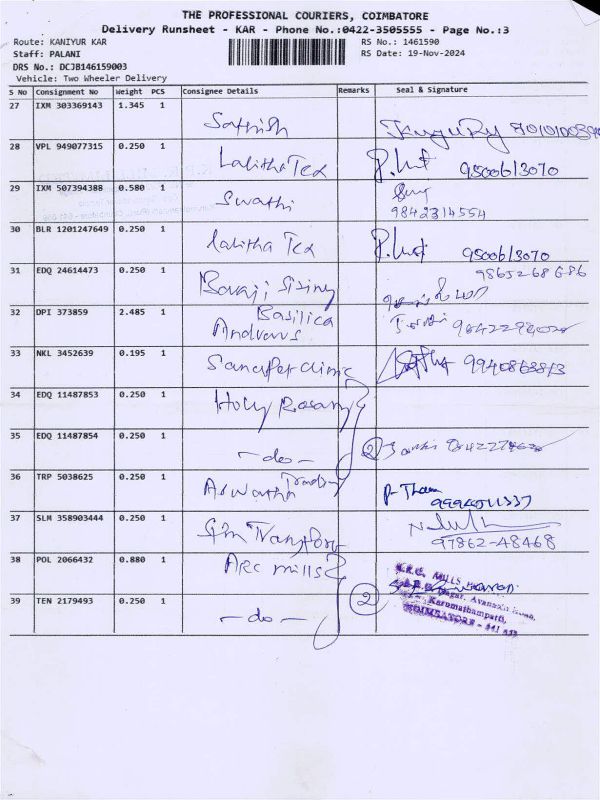 THE PROFESSIONAL COURIERS, COIMBATORE
Delivery Runsheet - KAR - Phone No.:0422-3505555 - Page No.:3
Route: KANIYUR KAR RS No.: 1461590
Staff: PALANI RS Date: 19-Nov-2024
DRS No.: DCJB146159003
Vehicle: Two Wheeler Delivery
S No Consignment No Weight PCS Consignee Details Remarks Seal & Signature
27 IXM 303369143 1.345 1
Sathish
28 VPL 949077315 0.250 1
Lalitha Tex 9500613070
29 IXM 507394388 0.580 1
Swathi
9842314554
30 BLR 1201247649 0.250 1
Lalitha Tex 9500613070
31 EDQ 24614473 0.250 1 9865268686
Bavaji
32 DPI 373859 2.485 1 Basilica
Andrews
33 NKL 3452639 0.195 1
9940863813
34 EDQ 11487853 0.250 1
Holy Rosary
35 EDQ 11487854 0.250 1
- do - 2
36 TRP 5038625 0.250 1
Aswatha
37 SLM 358903444 0.250 1
97862-48468
38 POL 2066432 0.880 1 ARC mills
39 TEN 2179493 0.250 1 2
- do -
MILLS
Nagar, Avanashi Road,
Karumathampatti,
COIMBATORE - 641 659